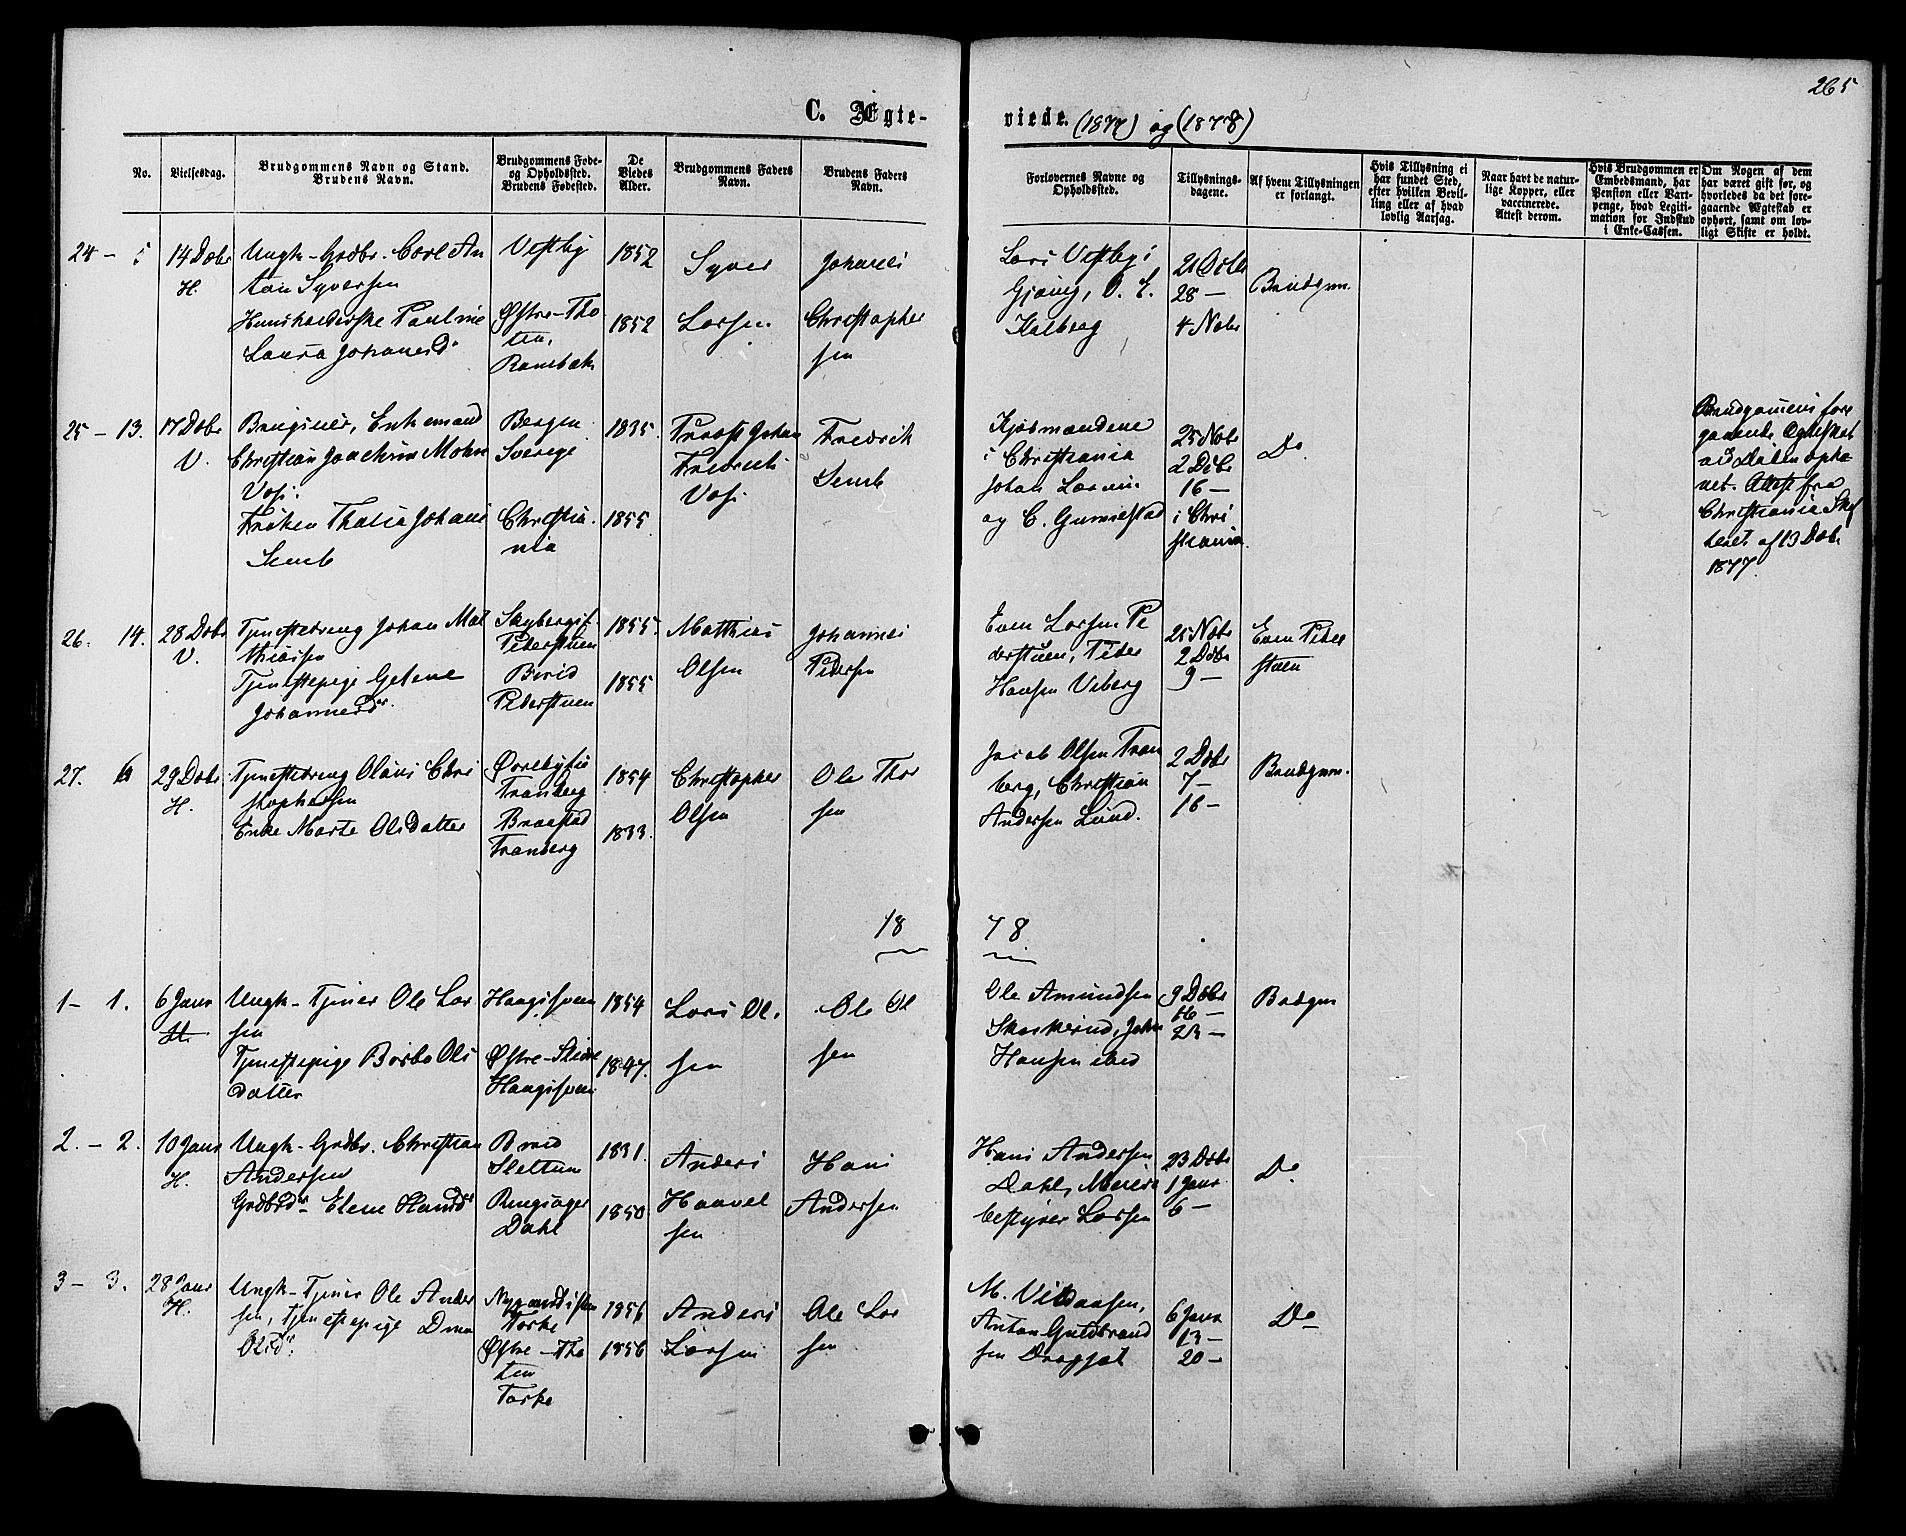 265
C. Ægte-
viede. (1877) og (1878)
No.
Vielsesdag.
Brudgommens Navn og Stand.
Brudens Navn.
Brudgommens Føde-
og Opholdssted.
Brudens Fødested.
De
Viedes
Alder.
Brudgommens Faders
Navn.
Brudens Faders
Navn.
Forlovernes Navne og
Opholdssted.
Tillysnings-
dagene.
Af hvem Tillysningen
er forlangt.
Hvis Tillysning ei
har fundet Sted,
efter hvilken Bevil-
ling eller af hvad
lovlig Aarsag.
Naar havt de natur-
lige Kopper, eller
vaccinerede.
Attest derom.
Hvis Brudgommen er
Embedsmand, har
Pension eller Vart-
penge, hvad Legiti-
mation for Indskud
i Enke-Cassen.
Om Nogen af dem
har været gift før, og
hvorledes da det fore-
gaaende Ægteskab er
ophørt, samt om lov-
ligt Skifte er holdt.
24 - 5
14 Dcbr
H.
Ungk-Grdbr. Carl An
ton Syversen
Huusholderske Pauline
Laura Johannesd
Vestby
Østre-To
ten,
Rambæk
1852
1852
Syver
Larsen
Johanes
Christopher
sen
Lars Vestby i
Gjøvig, O. E.
Kalberg
21 Octbr
28 -
4 Novbr
Brudgom.
25 - 13.
17 Dcbr
V.
Christian Joachim Mohn
Vos.
Frøken Thalia Johane
Semb
Bergen
Sverige
Christia
nia
1835
1855
Provst Johan
Fredrik
Vos.
Fredrik
Semb
Kjøbmændene
i Christiania
Johan
og C. Gunnestad
25 Novbr
2 Dcbr
16 -
i Chri
stiania
Do
Brudgomens fore
gaaende Ægteskab
ved Døden opho
ret. Attest fra
Christiania Skif
teret af 13 Dcbr
1877.
26. 14.
28 Dcbr
V.
Tjenestedreng Johan Mat
thiassen
Tjenestepige Gelene
Johannesdr.
Pederstuen
Birid
Pederstuen
1855.
1855
Matthias
Olsen
Johannes
Pedersen
Even Larsen Pe
derstuen, Peder
Hansen Viberg
25 Novbr
2 Dcbr
9 -
Even Peder
stuen
27. 6
29 Dcbr
H.
Tjenestedreng Olaus Chri
stophersen
Enke Marte Olsdatter
Tranberg
Braastad
Tranberg
1854
1833.
Christopher
Olsen
Ole Thor
sen
Jacob Olsen Tran
berg, Christian
Andersen Lund.
2 Dcbr
7 -
16 -
Brudgom.
18
78
1 - 1.
6 Janr
H.
Ungk-Tjener Ole Lar
sen
Tjenestepige Barbo Ols
datter
Haugsveen
Østre-Slidre
Haugsveen
1854
1847.
Lars Ol
sen
Ole Ol
sen
Ole Amundsen
Skaskerud, John
Hansen ibid
9 Dcbr
16 -
23 -
Brdgm
2. - 2.
10 Janr
H.
Ungk-Grdbr. Christian
Andersen
Grdbrdr Elene Hansdr
Birid
Slettum
Ringsager
Dahl
1831.
1850
Anders
Haavel
sen
Hans
Andersen
Hans Andersen
Dahl, Meieri
bestyrer Larsen
23 Dcbr
1 Janr
6 -
Do
3 - 3.
28 Janr
H.
Ungk-Tjener Ole Ander
sen, Tjenestepige Dina
Olsdr.
Torke
Østre-To
ten
Torke
1856
1856
Anders
Larsen
Ole Lar
sen
M. Vildaasen,
Anton Guldbrand
sen Dragsæt
6 Janr
13 -
20 -
Do